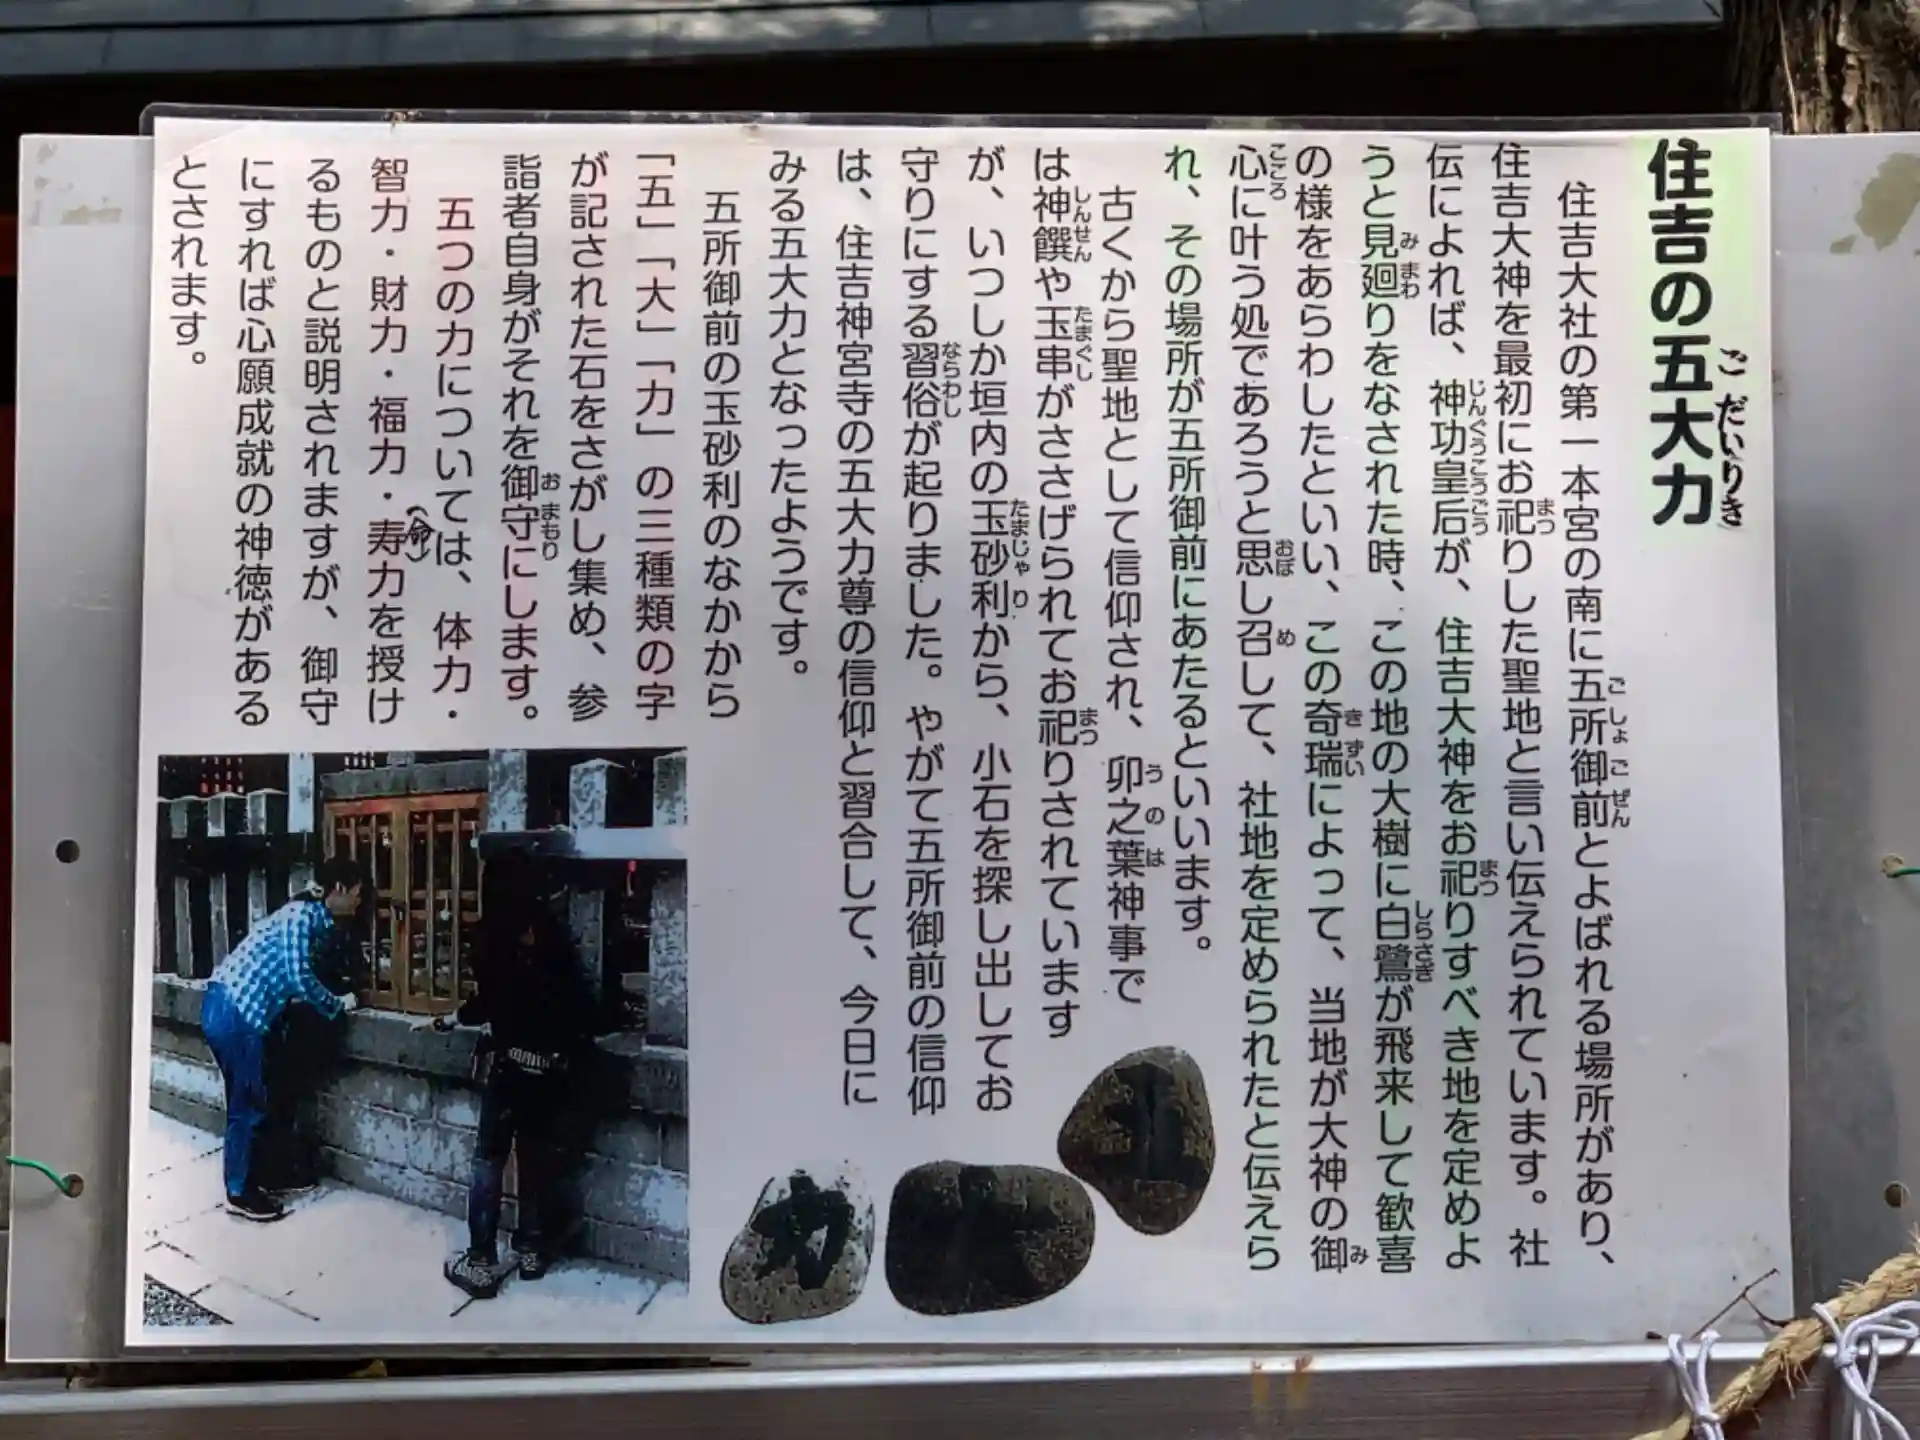 住吉の五大力
ごだいりき
住吉大社の第一本宮の南に五所御前とよばれる場所があり、
ごしょごぜん
住吉大神を最初にお祀りした聖地と言い伝えられています。社
まつ
伝によれば、神功皇后が、住吉大神をお祀りすべき地を定めよ
じんぐうこうごう まつ
うと見廻りをなされた時、この地の大樹に白鷺が飛来して歓喜
みまわ しらさぎ
の様をあらわしたといい、この奇瑞によって、当地が大神の御
きずい み
心に叶う処であろうと思し召して、社地を定められたと伝えら
こころ おぼ め
れ、その場所が五所御前にあたるといいます。
古くから聖地として信仰され、卯之葉神事で
うのは
は神饌や玉串がささげられてお祀りされています
しんせん たまぐし まつ
が、いつしか垣内の玉砂利から、小石を探し出してお
たまじゃり
守りにする習俗が起りました。やがて五所御前の信仰
ならわし
は、住吉神宮寺の五大力尊の信仰と習合して、今日に
みる五大力となったようです。
五所御前の玉砂利のなかから
「五」「大」「力」の三種類の字
が記された石をさがし集め、参
詣者自身がそれを御守にします。
おまもり
五つの力については、体力・
智力・財力・福力・寿力を授け
（命）
るものと説明されますが、御守
にすれば心願成就の神徳がある
とされます。
力